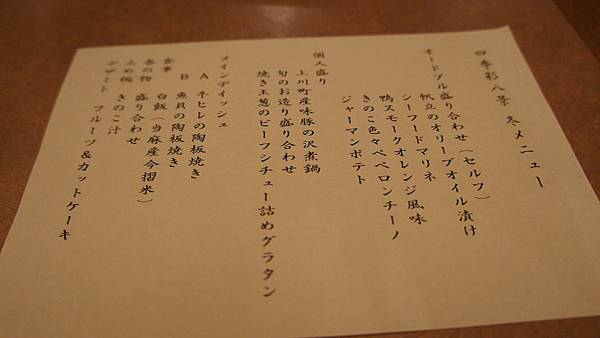 四季彩八景 冬メニュー
オードブル盛り合わせ（セルフ）
帆立のオリーブオイル漬け
シーフードマリネ
鴨スモークオレンジ風味
きのこ色々ペペロンチーノ
ジャーマンポテト
個人盛り
上川町産味豚の沢煮鍋
旬のお造り盛り合わせ
焼き玉葱のビーフシチュー詰めグラタン
メインディッシュ
A 牛ヒレの陶板焼き
B 魚貝の陶板焼き
食事 白飯（当麻産今摺米）
香の物 盛り合わせ
止め椀 きのこ汁
デザート フルーツ＆カットケーキ